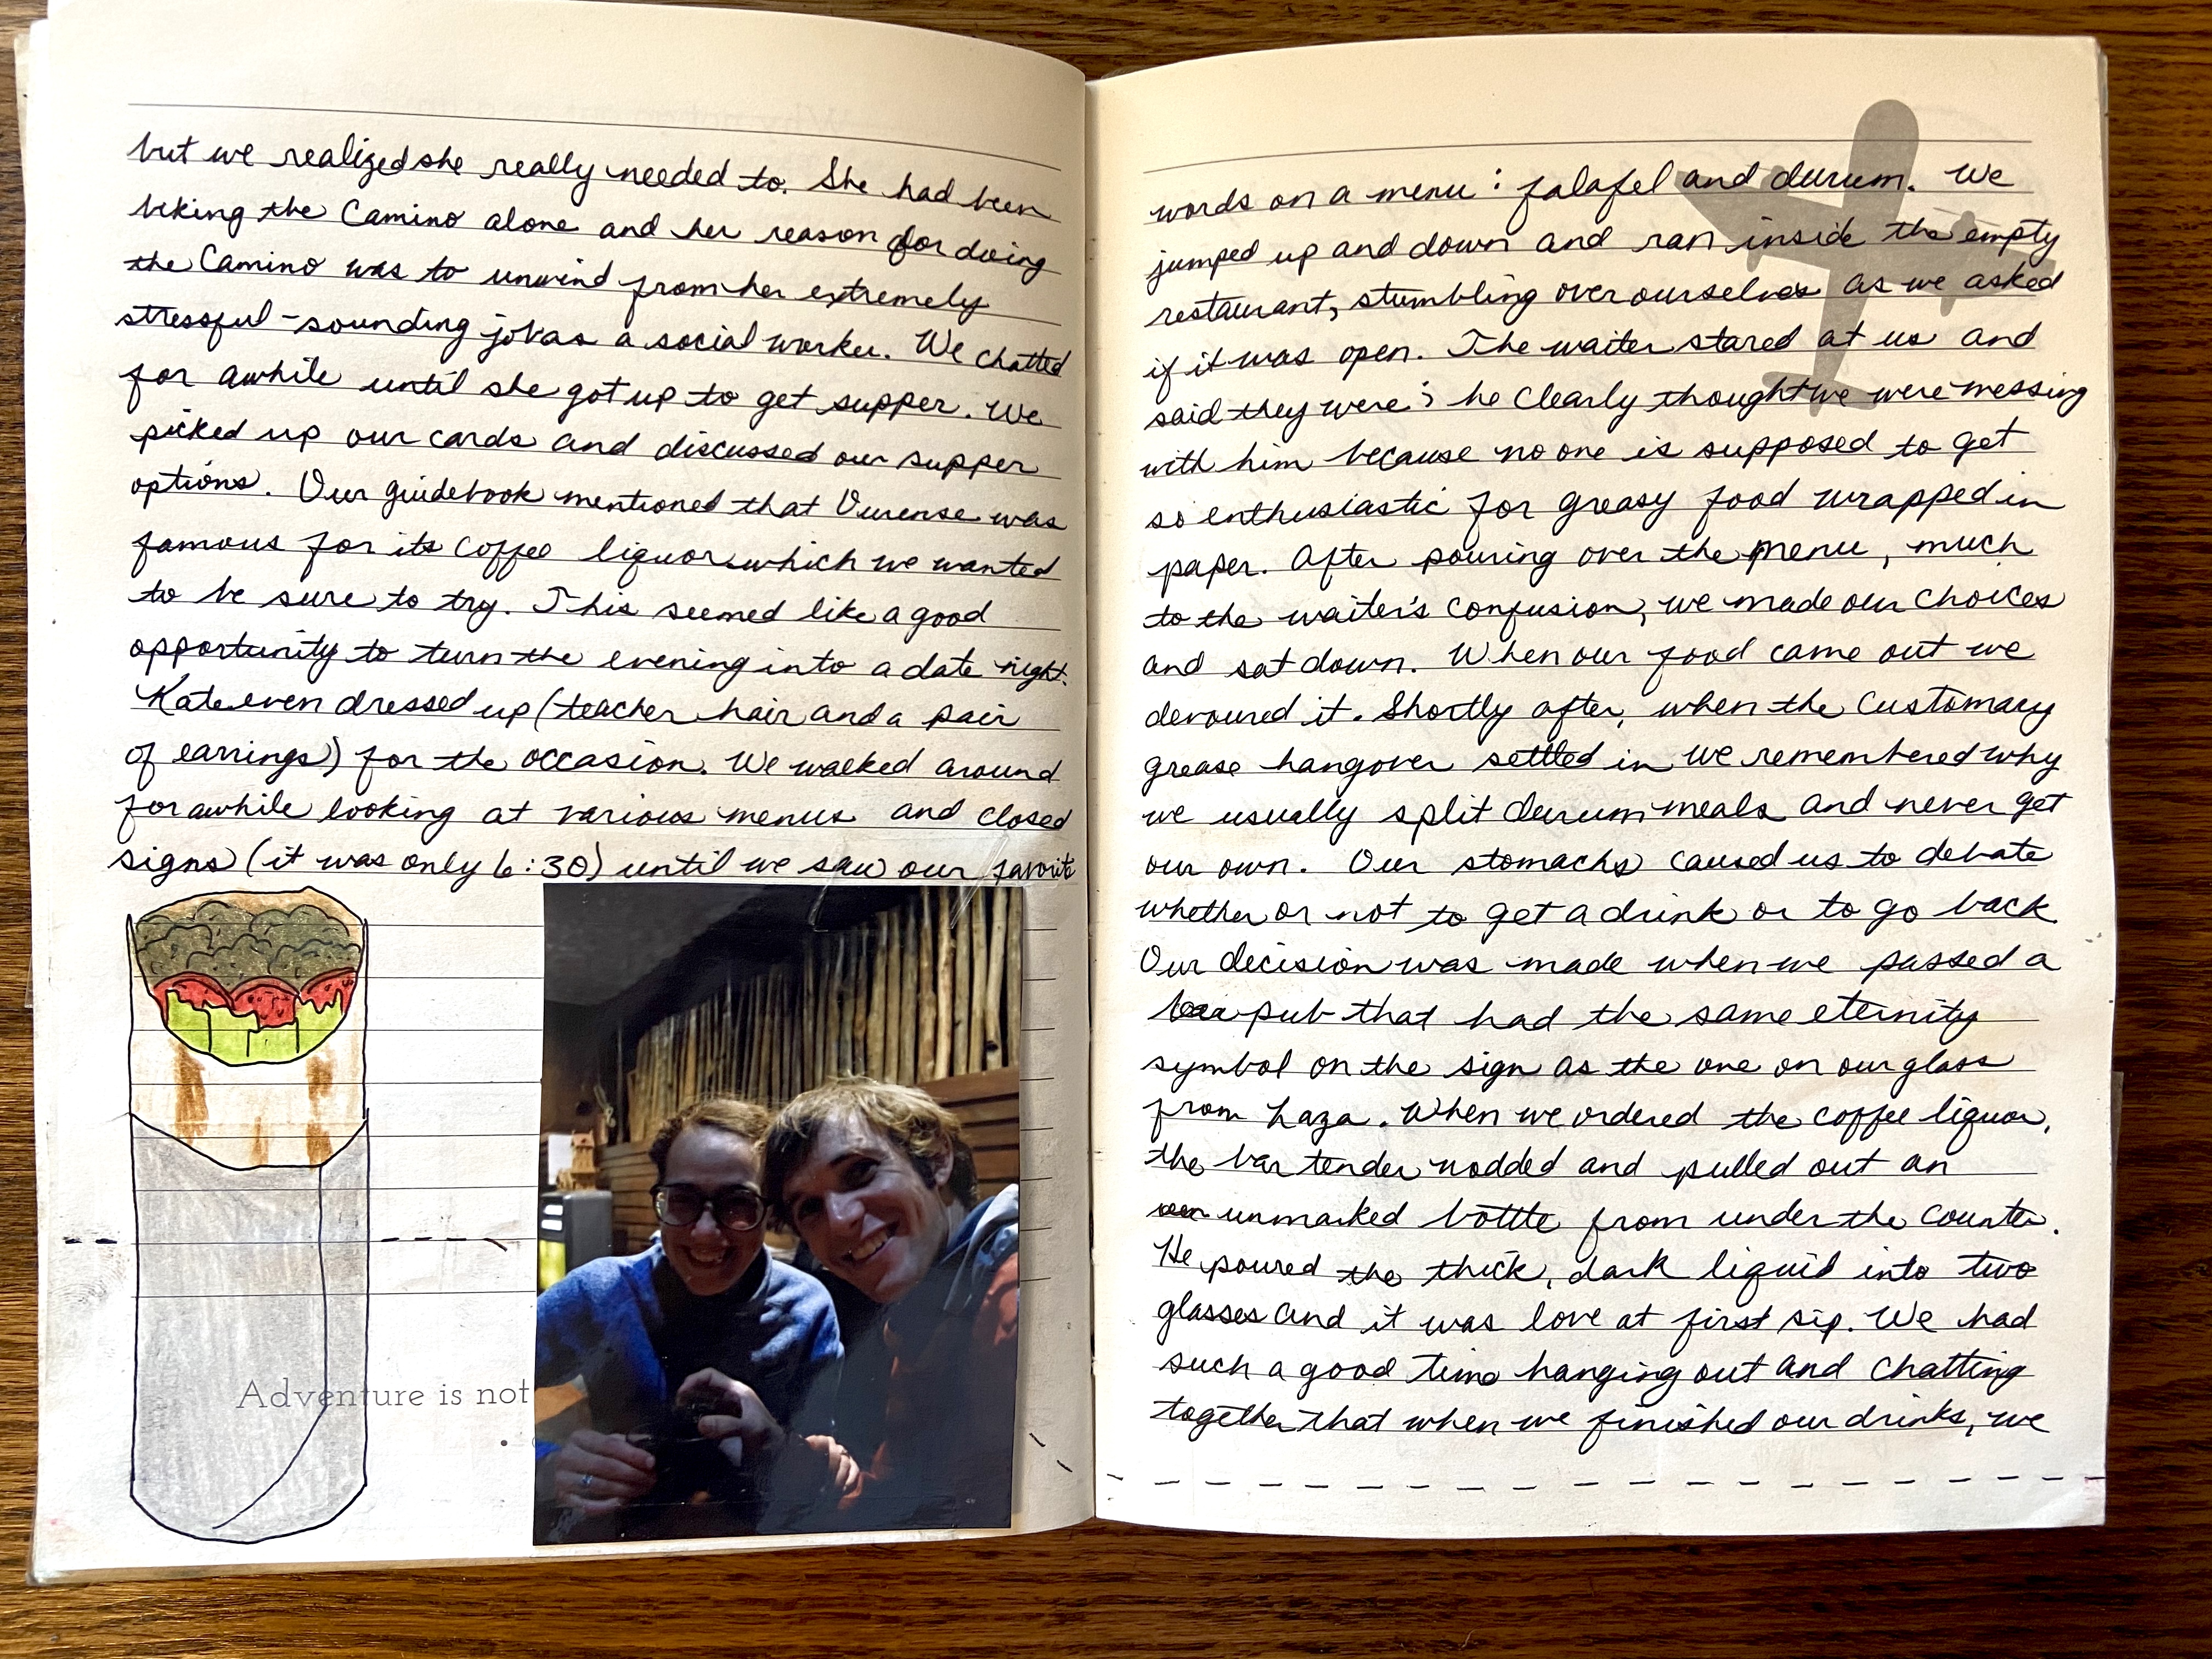 but we realized she really needed to. She had been
biking the Camino alone and her reason for doing
the Camino was to unwind from her extremely
stressful-sounding job as a social worker. We chatted
for awhile until she got up to get supper. We
picked up our cards and discussed our supper
options. Our guidebook mentioned that Ourense was
famous for its coffee liquor which we wanted
to be sure to try. This seemed like a good
opportunity to turn the evening into a date night.
Kate even dressed up (teacher hair and a pair
of earrings) for the occasion. We walked around
for awhile looking at various menus and closed
signs (it was only 6:30) until we saw our favorite
Adventure is not
words on a menu: falafel and durum. We
jumped up and down and ran inside the empty
restaurant, stumbling over ourselves as we asked
if it was open. The waiter stared at us and
said they were; he clearly thought we were messing
with him because no one is supposed to get
so enthusiastic for greasy food wrapped in
paper. After pouring over the menu, much
to the waiter's confusion, we made our choices
and sat down. When our food came out we
devoured it. Shortly after, when the customary
grease hangover settled in we remembered why
we usually split durum meals and never get
our own. Our stomachs caused us to debate
whether or not to get a drink or to go back.
Our decision was made when we passed a
pub that had the same eternity
symbol on the sign as the one on our glass
from Laza. When we ordered the coffee liquor,
the bartender nodded and pulled out an
unmarked bottle from under the counter.
He poured the thick, dark liquid into two
glasses and it was love at first sip. We had
such a good time hanging out and chatting
together that when we finished our drinks, we